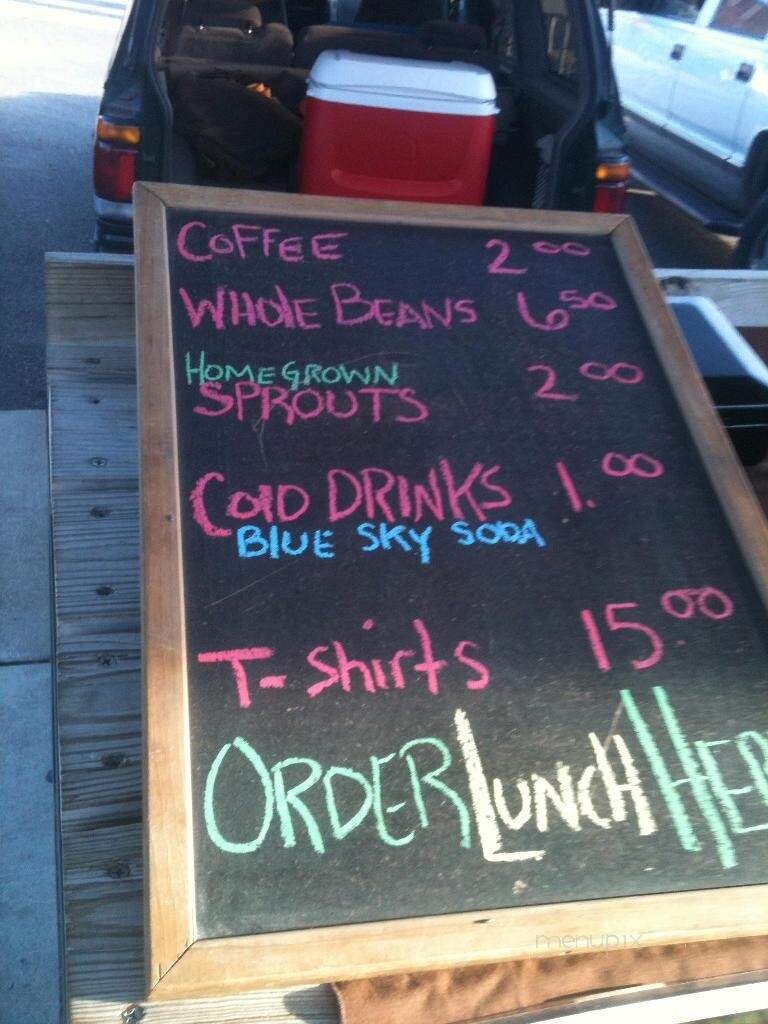 COFFEE 2 00
WHOLE BEANS 6 50
HOMEGROWN
SPROUTS 2 00
COLD DRINKS 1. 00
BLUE SKY SODA
T-Shirts 15. 00
ORDER LUNCH HE
menupix